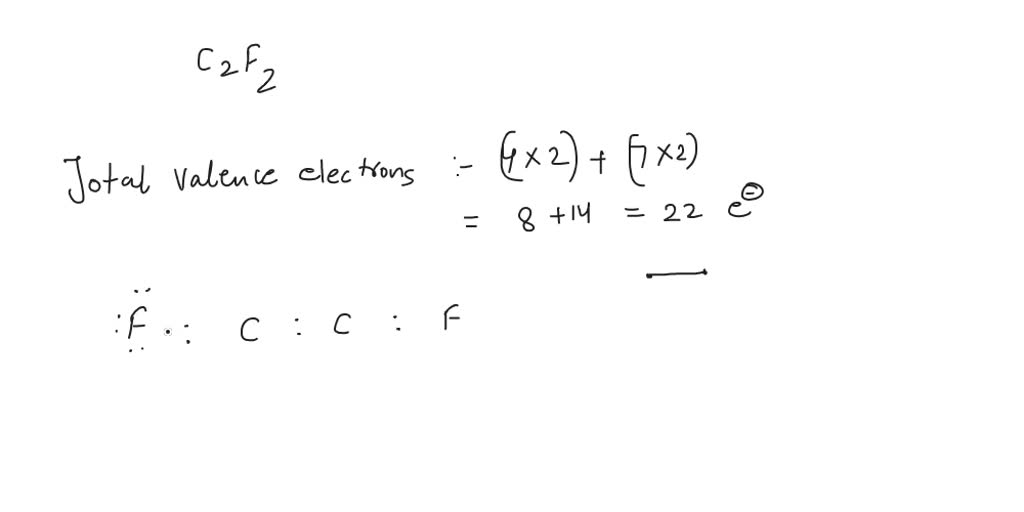 C₂F₂
Total valence electrons :- (4×2) + (7×2)
= 8 + 14 = 22 e⊖
:F̤̈ ·: C : C : F